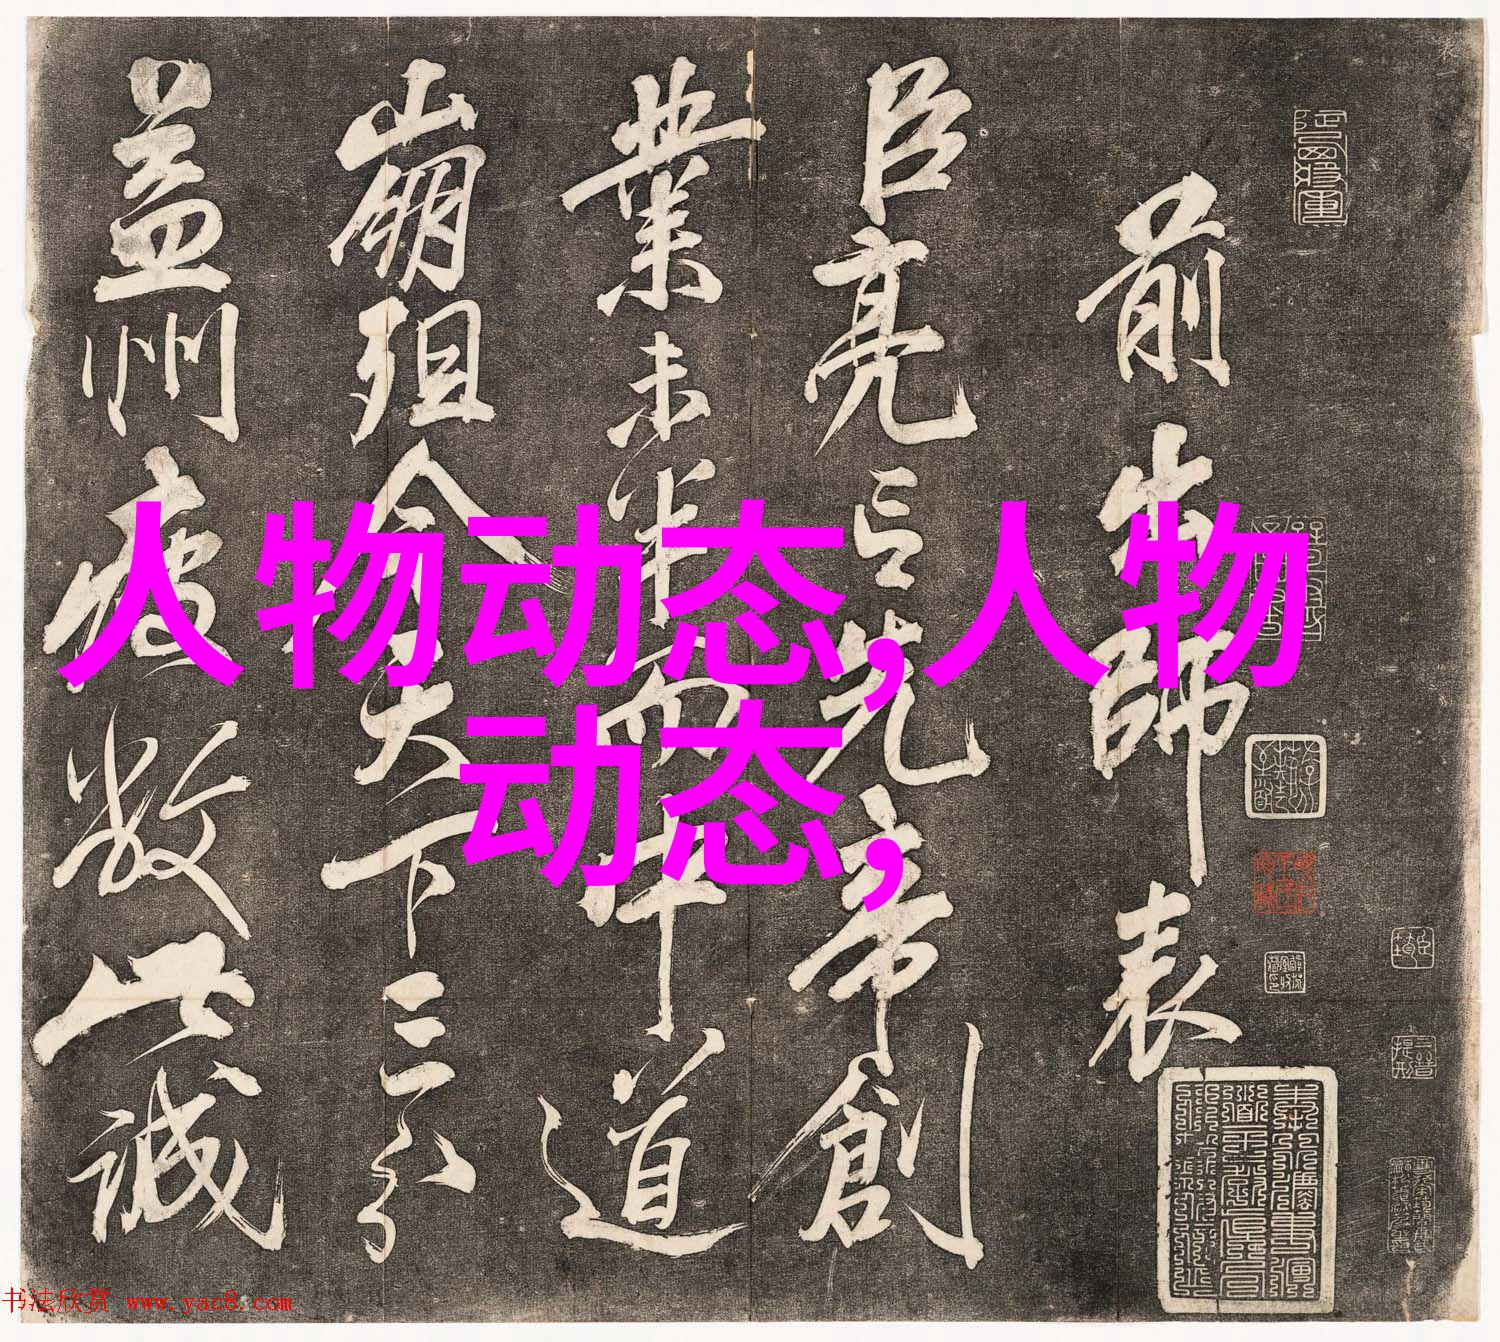 前出師表
臣亮言先帝創
業未半而中道
崩殂今天下三分
益州疲敝此誠
人物动态,人物
动态,
书法欣赏 www.yac8.com